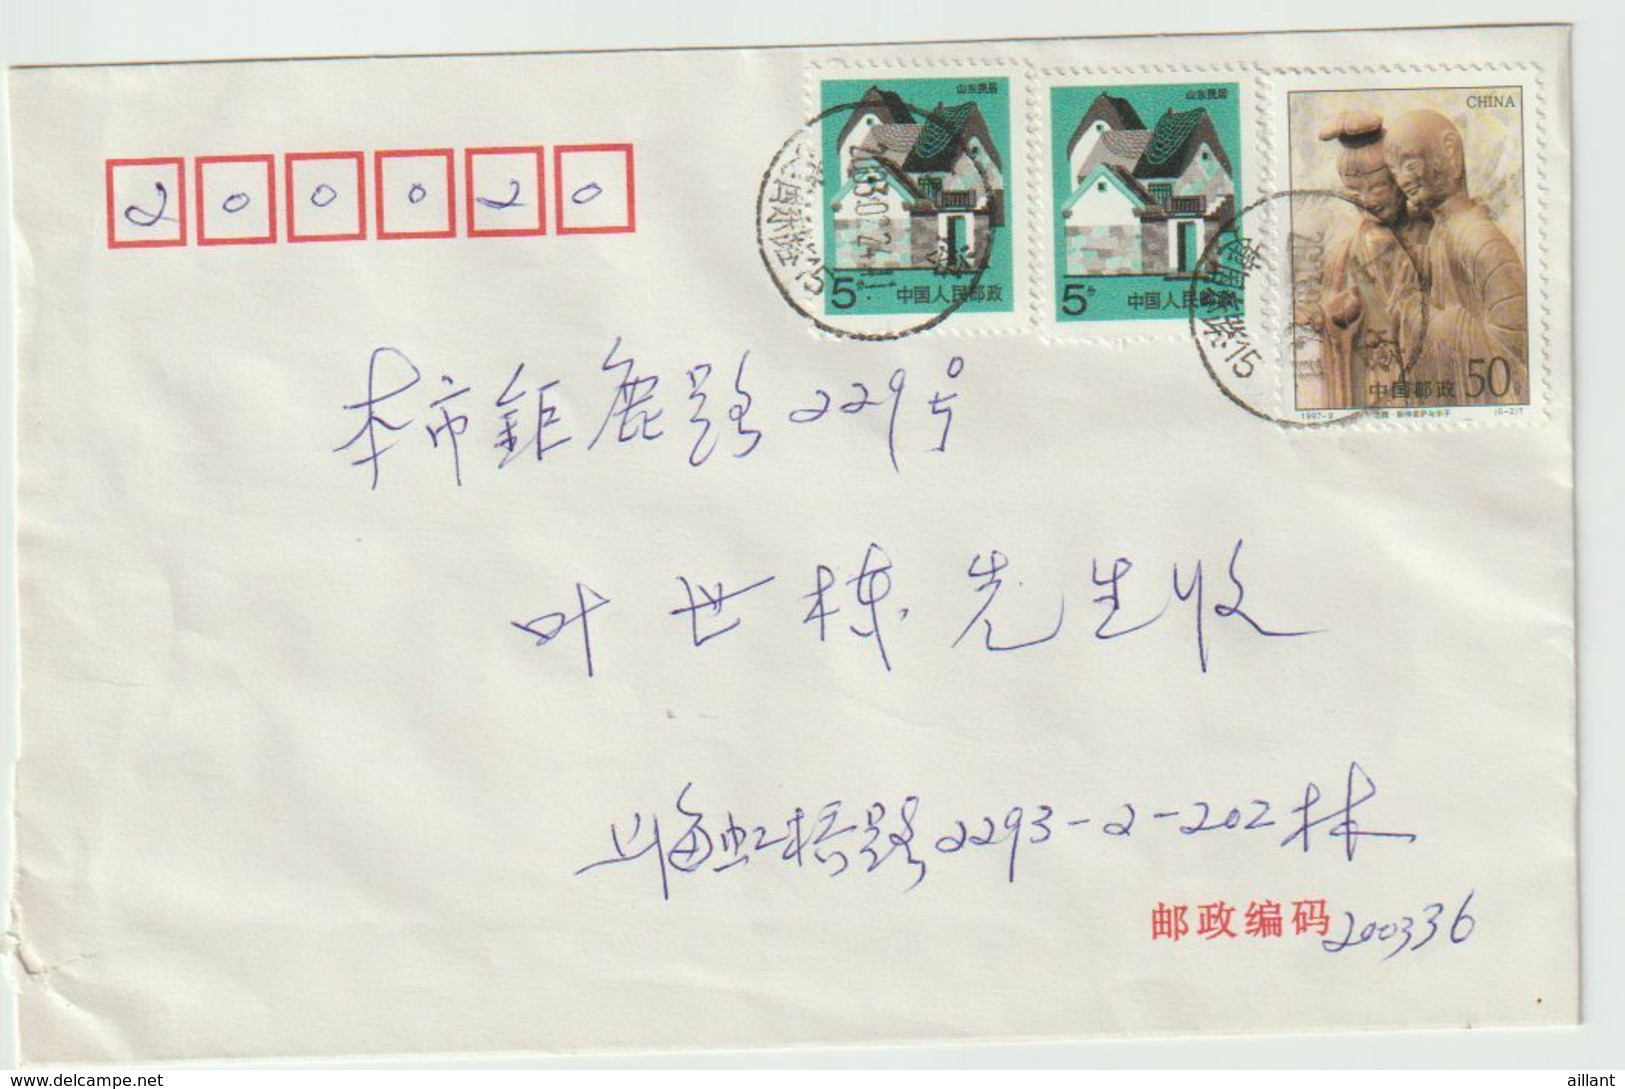 200020
山东民居
5分
中国人民邮政
山东民居
5分
中国人民邮政
CHINA
50分
中国邮政
1997-9
(6-2)T
本市钜鹿路229号
叶世栋先生收
上海虹桥路2293-2-202林
邮政编码 200336
www.delcampe.net
aillant